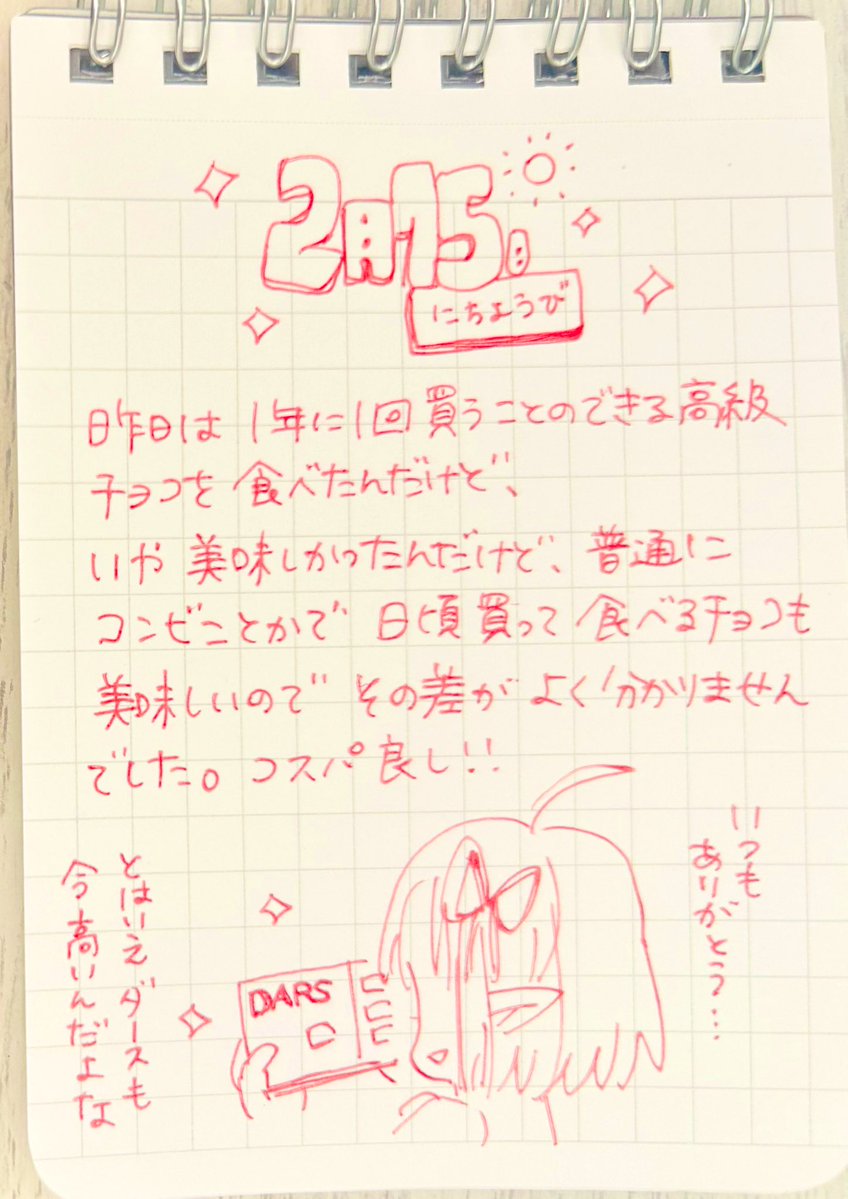 2月15日
にちようび
昨日は1年に1回買うことのできる高級
チョコを食べたんだけど、
いや美味しかったんだけど、普通に
コンビニとかで日頃買って食べるチョコも
美味しいのでその差がよく分かりません
でした。コスパ良し!!
いつも
ありがとう…
DARS
とはいえダースも
今高いんだよな